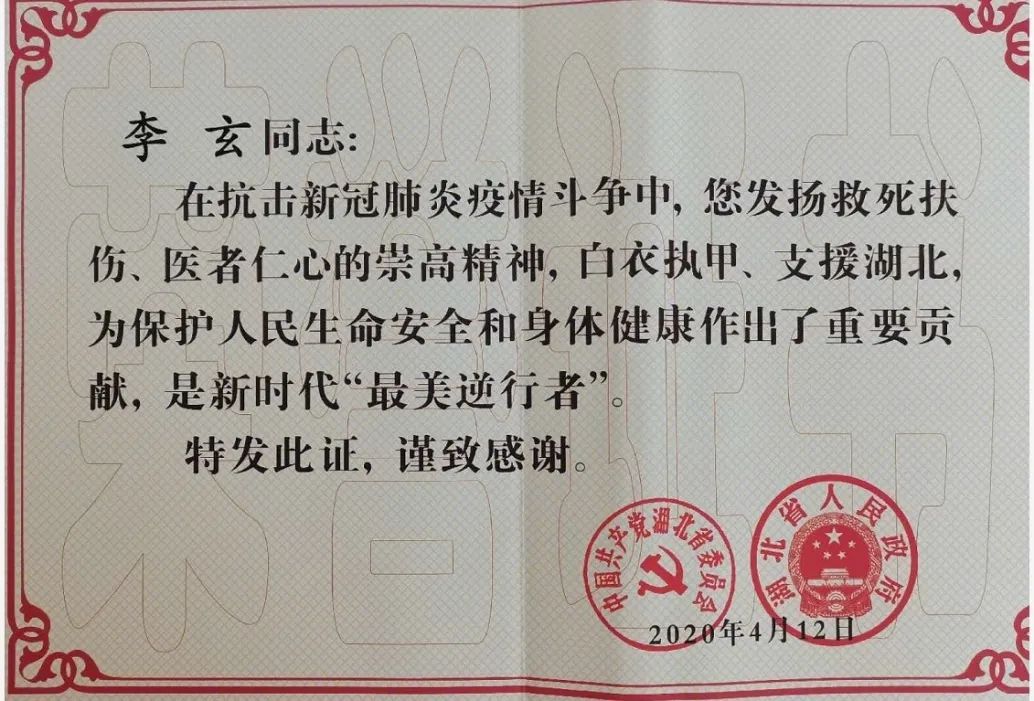 李 玄同志:
在抗击新冠肺炎疫情斗争中, 您发扬救死扶
伤、医者仁心的崇高精神, 白衣执甲、支援湖北,
为保护人民生命安全和身体健康作出了重要贡
献, 是新时代“最美逆行者”。
特发此证, 谨致感谢。
中国共产党湖北省委员会
湖北省人民政府
2020年4月12日